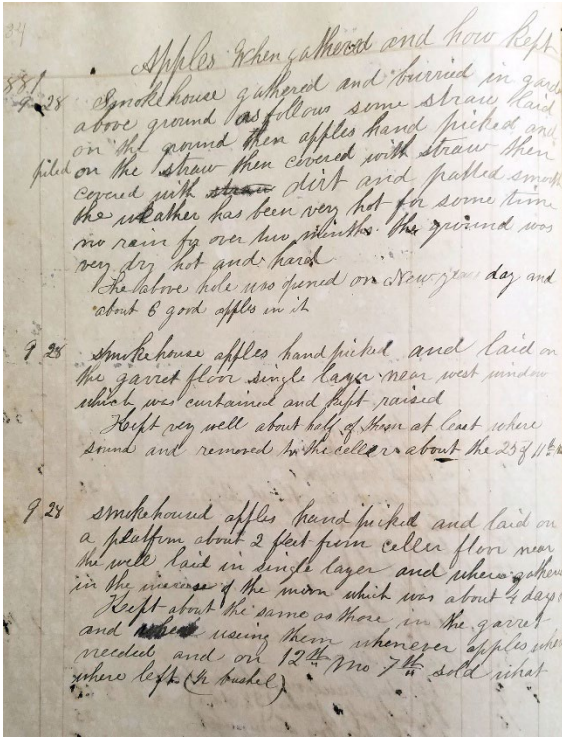 34
Apples When gathered and how kept
881
9 28 Smokehouse gathered and burried in garde
above ground as follows some straw laid
on the ground then apples hand picked and
piled on the straw then covered with straw then
covered with straw dirt and patted smooth
the weather has been very hot for some time
no rain for over two months. the ground was
very dry hot and hard
The above hole was opened on New years day and
about 6 good apples in it
9 28 smokehouse apples handpicked and laid on
the garret floor single layer near west window
which was curtained and kept raised
Kept very well about half of them at least where
sound and removed to the celler about the 25 of 11th
9 28 smokehoused apples hand picked and laid on
a platform about 2 feet from celler floor near
the well laid in single layer and where gathere
in the increase of the moon which was about 4 days
Kept about the same as those in the garret
and useing them whenever apples wher
needed and on 12th Mo 7th sold what
where left (½ bushel)